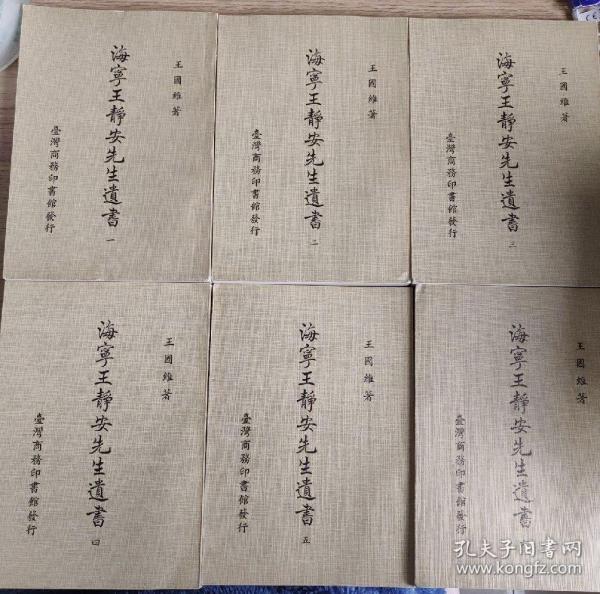 王國維著
海寧王靜安先生遺書 一
臺灣商務印書館發行
王國維著
海寧王靜安先生遺書 二
臺灣商務印書館發行
王國維著
海寧王靜安先生遺書 三
臺灣商務印書館發行
王國維著
海寧王靜安先生遺書 四
臺灣商務印書館發行
王國維著
海寧王靜安先生遺書 五
臺灣商務印書館發行
王國維著
海寧王靜安先生遺書
臺灣商務印書館發行
孔夫子旧书网
www.kongfz.com